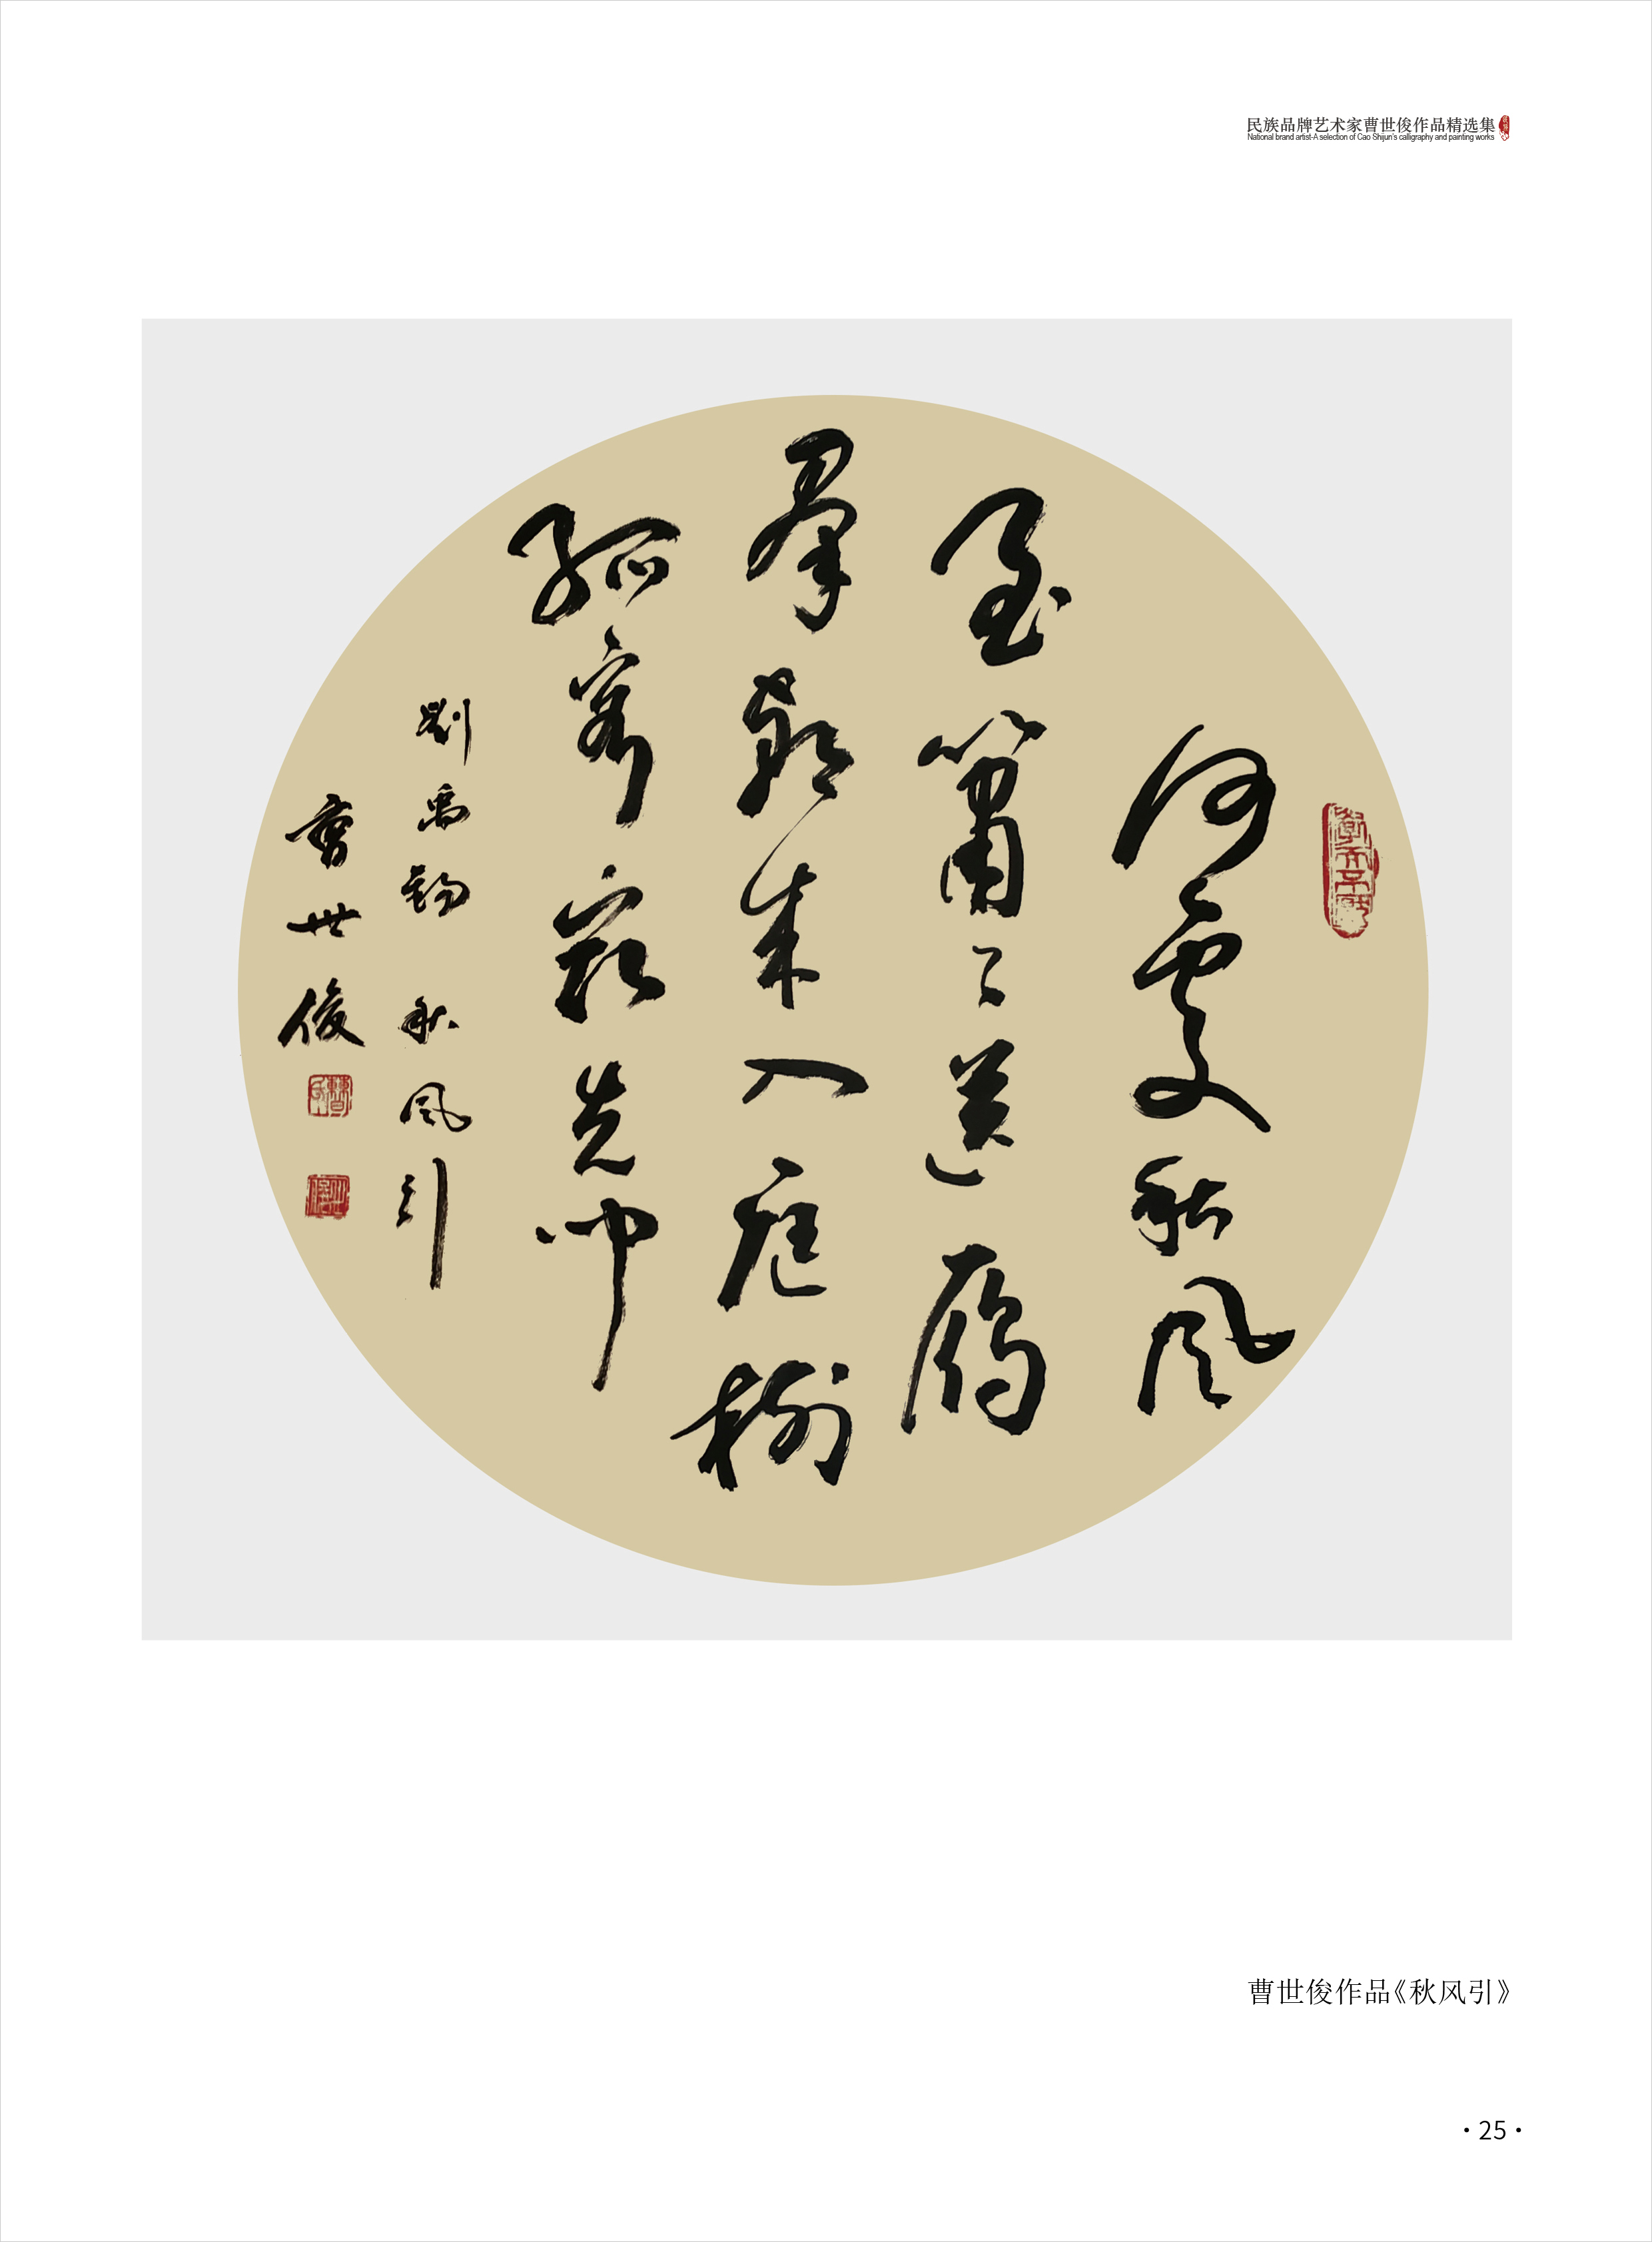 民族品牌艺术家曹世俊作品精选集
National brand artist-A selection of Cao Shijun's calligraphy and painting works
何處秋风
至蕭々送雁
羣朝来入庭樹
孤客最先闻
劉禹錫秋风引
曹世俊
曹世俊作品《秋风引》
·25·